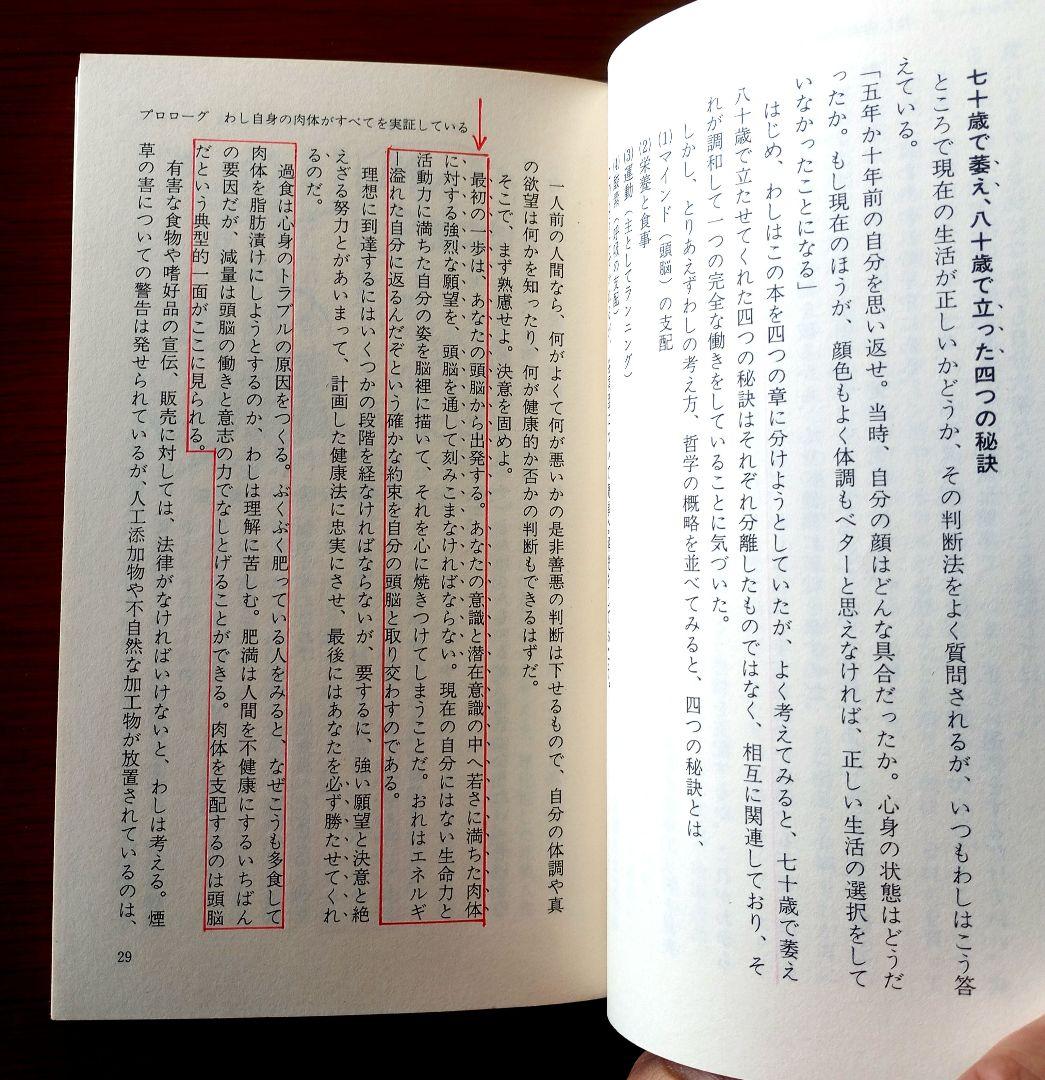 七十歳で萎え、八十歳で立った四つの秘訣
ところで現在の生活が正しいかどうか、その判断法をよく質問されるが、いつもわしはこう答
えている。
「五年か十年前の自分を思い返せ。当時、自分の顔はどんな具合だったか。心身の状態はどうだ
ったか。もし現在のほうが、顔色もよく体調もベターと思えなければ、正しい生活の選択をして
いなかったことになる」
はじめ、わしはこの本を四つの章に分けようとしていたが、よく考えてみると、七十歳で萎え
八十歳で立たせてくれた四つの秘訣はそれぞれ分離したものではなく、相互に関連しており、そ
れが調和して一つの完全な働きをしていることに気づいた。
しかし、とりあえずわしの考え方、哲学の概略を並べてみると、四つの秘訣とは、
(1)マインド(頭脳)の支配
(2)栄養と食事
(3)運動(主としてランニング)
プロローグ わし自身の肉体がすべてを実証している
一人前の人間なら、何がよくて何が悪いかの是非善悪の判断は下せるもので、自分の体調や真
の欲望は何かを知ったり、何が健康的か否かの判断もできるはずだ。
そこで、まず熟慮せよ。決意を固めよ。
最初の一歩は、あなたの頭脳から出発する。あなたの意識と潜在意識の中へ若さに満ちた肉体
に対する強烈な願望を、頭脳を通して刻みこまなければならない。現在の自分にはない生命力と
活動力に満ちた自分の姿を脳裡に描いて、それを心に焼きつけてしまうことだ。おれはエネルギ
ー溢れた自分に返るんだぞという確かな約束を自分の頭脳と取り交わすのである。
理想に到達するにはいくつかの段階を経なければならないが、要するに、強い願望と決意と絶
えざる努力とがあいまって、計画した健康法に忠実にさせ、最後にはあなたを必ず勝たせてくれ
るのだ。
過食は心身のトラブルの原因をつくる。ぶくぶく肥っている人をみると、なぜこうも多食して
肉体を脂肪漬けにしようとするのか、わしは理解に苦しむ。肥満は人間を不健康にするいちばん
の要因だが、減量は頭脳の働きと意志の力でなしとげることができる。肉体を支配するのは頭脳
だという典型的一面がここに見られる。
有害な食物や嗜好品の宣伝、販売に対しては、法律がなければいけないと、わしは考える。煙
草の害についての警告は発せられているが、人工添加物や不自然な加工物が放置されているのは、
29